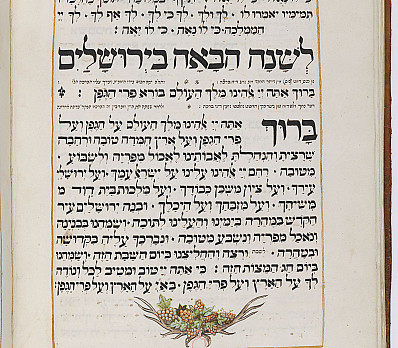 תמימיו יאמרו לו · לך ולך · לך כי לך · לך אף לך · לך יי
הממלכה · כי לו נאה · כי לו יאה :
לשנה הבאה בירושלים
ברוך אתה יי אלהינו מלך העולם בורא פרי הגפן :
ברוך אתה יי אלהינו מלך העולם על הגפן ועל
פרי הגפן ועל ארץ חמדה טובה ורחבה
שרצית והנחלת לאבותינו לאכול מפריה ולשבוע
מטובה · רחם יי אלהינו עלינו על ישראל עמך · ועל ירושלי
עירך · ועל ציון משכן כבודך · ועל מלכות בית דוד
משיחך · ועל מזבחך ועל היכלך · ובנה ירושלים עיר
הקדש במהרה בימינו והעלינו לתוכה · ושמחנו בבנינה
ונאכל מפריה ונשבע מטובה · ונברכך עליה בקדושה
ובטהרה · לשבת ורצה והחליצנו ביום השבת הזה · ושמחנו
ביום חג המצות הזה : כי אתה יי טוב ומטיב לכל ונודה
לך על הארץ ועל פרי הגפן · באי על הארץ ועל פרי הגפן :